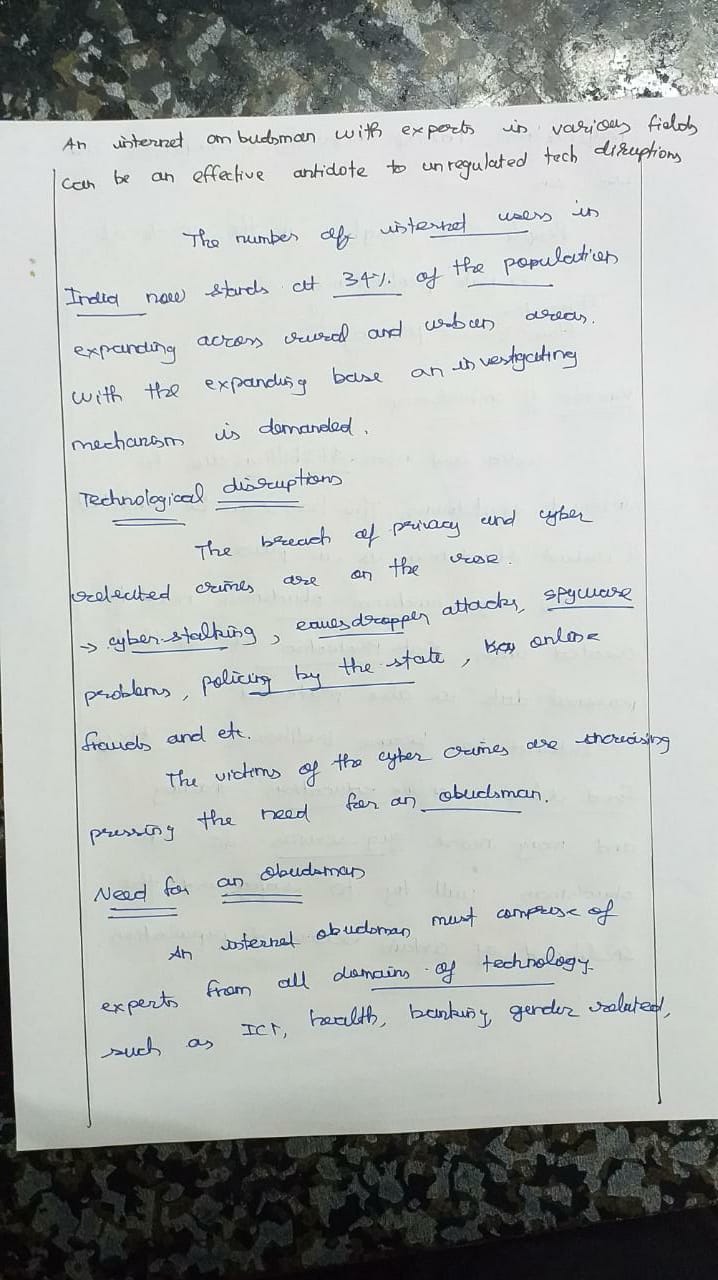 An internet ombudsman with experts in various fields
can be an effective antidote to unregulated tech disruptions
The number of internet users in
India now stands at 34% of the population
expanding across rural and urban areas.
with the expanding base an investigating
mechanism is demanded.
Technological disruptions
The breach of privacy and cyber
related crimes are on the rise.
→ cyber-stalking, eavesdropper attacks, spyware
problems, policing by the state, online
frauds and etc.
The victims of the cyber crimes are increasing
pressing the need for an obudsman.
Need for an obudsman
An internet obudsman must comprise of
experts from all domains of technology.
such as ICT, health, banking, gender related,